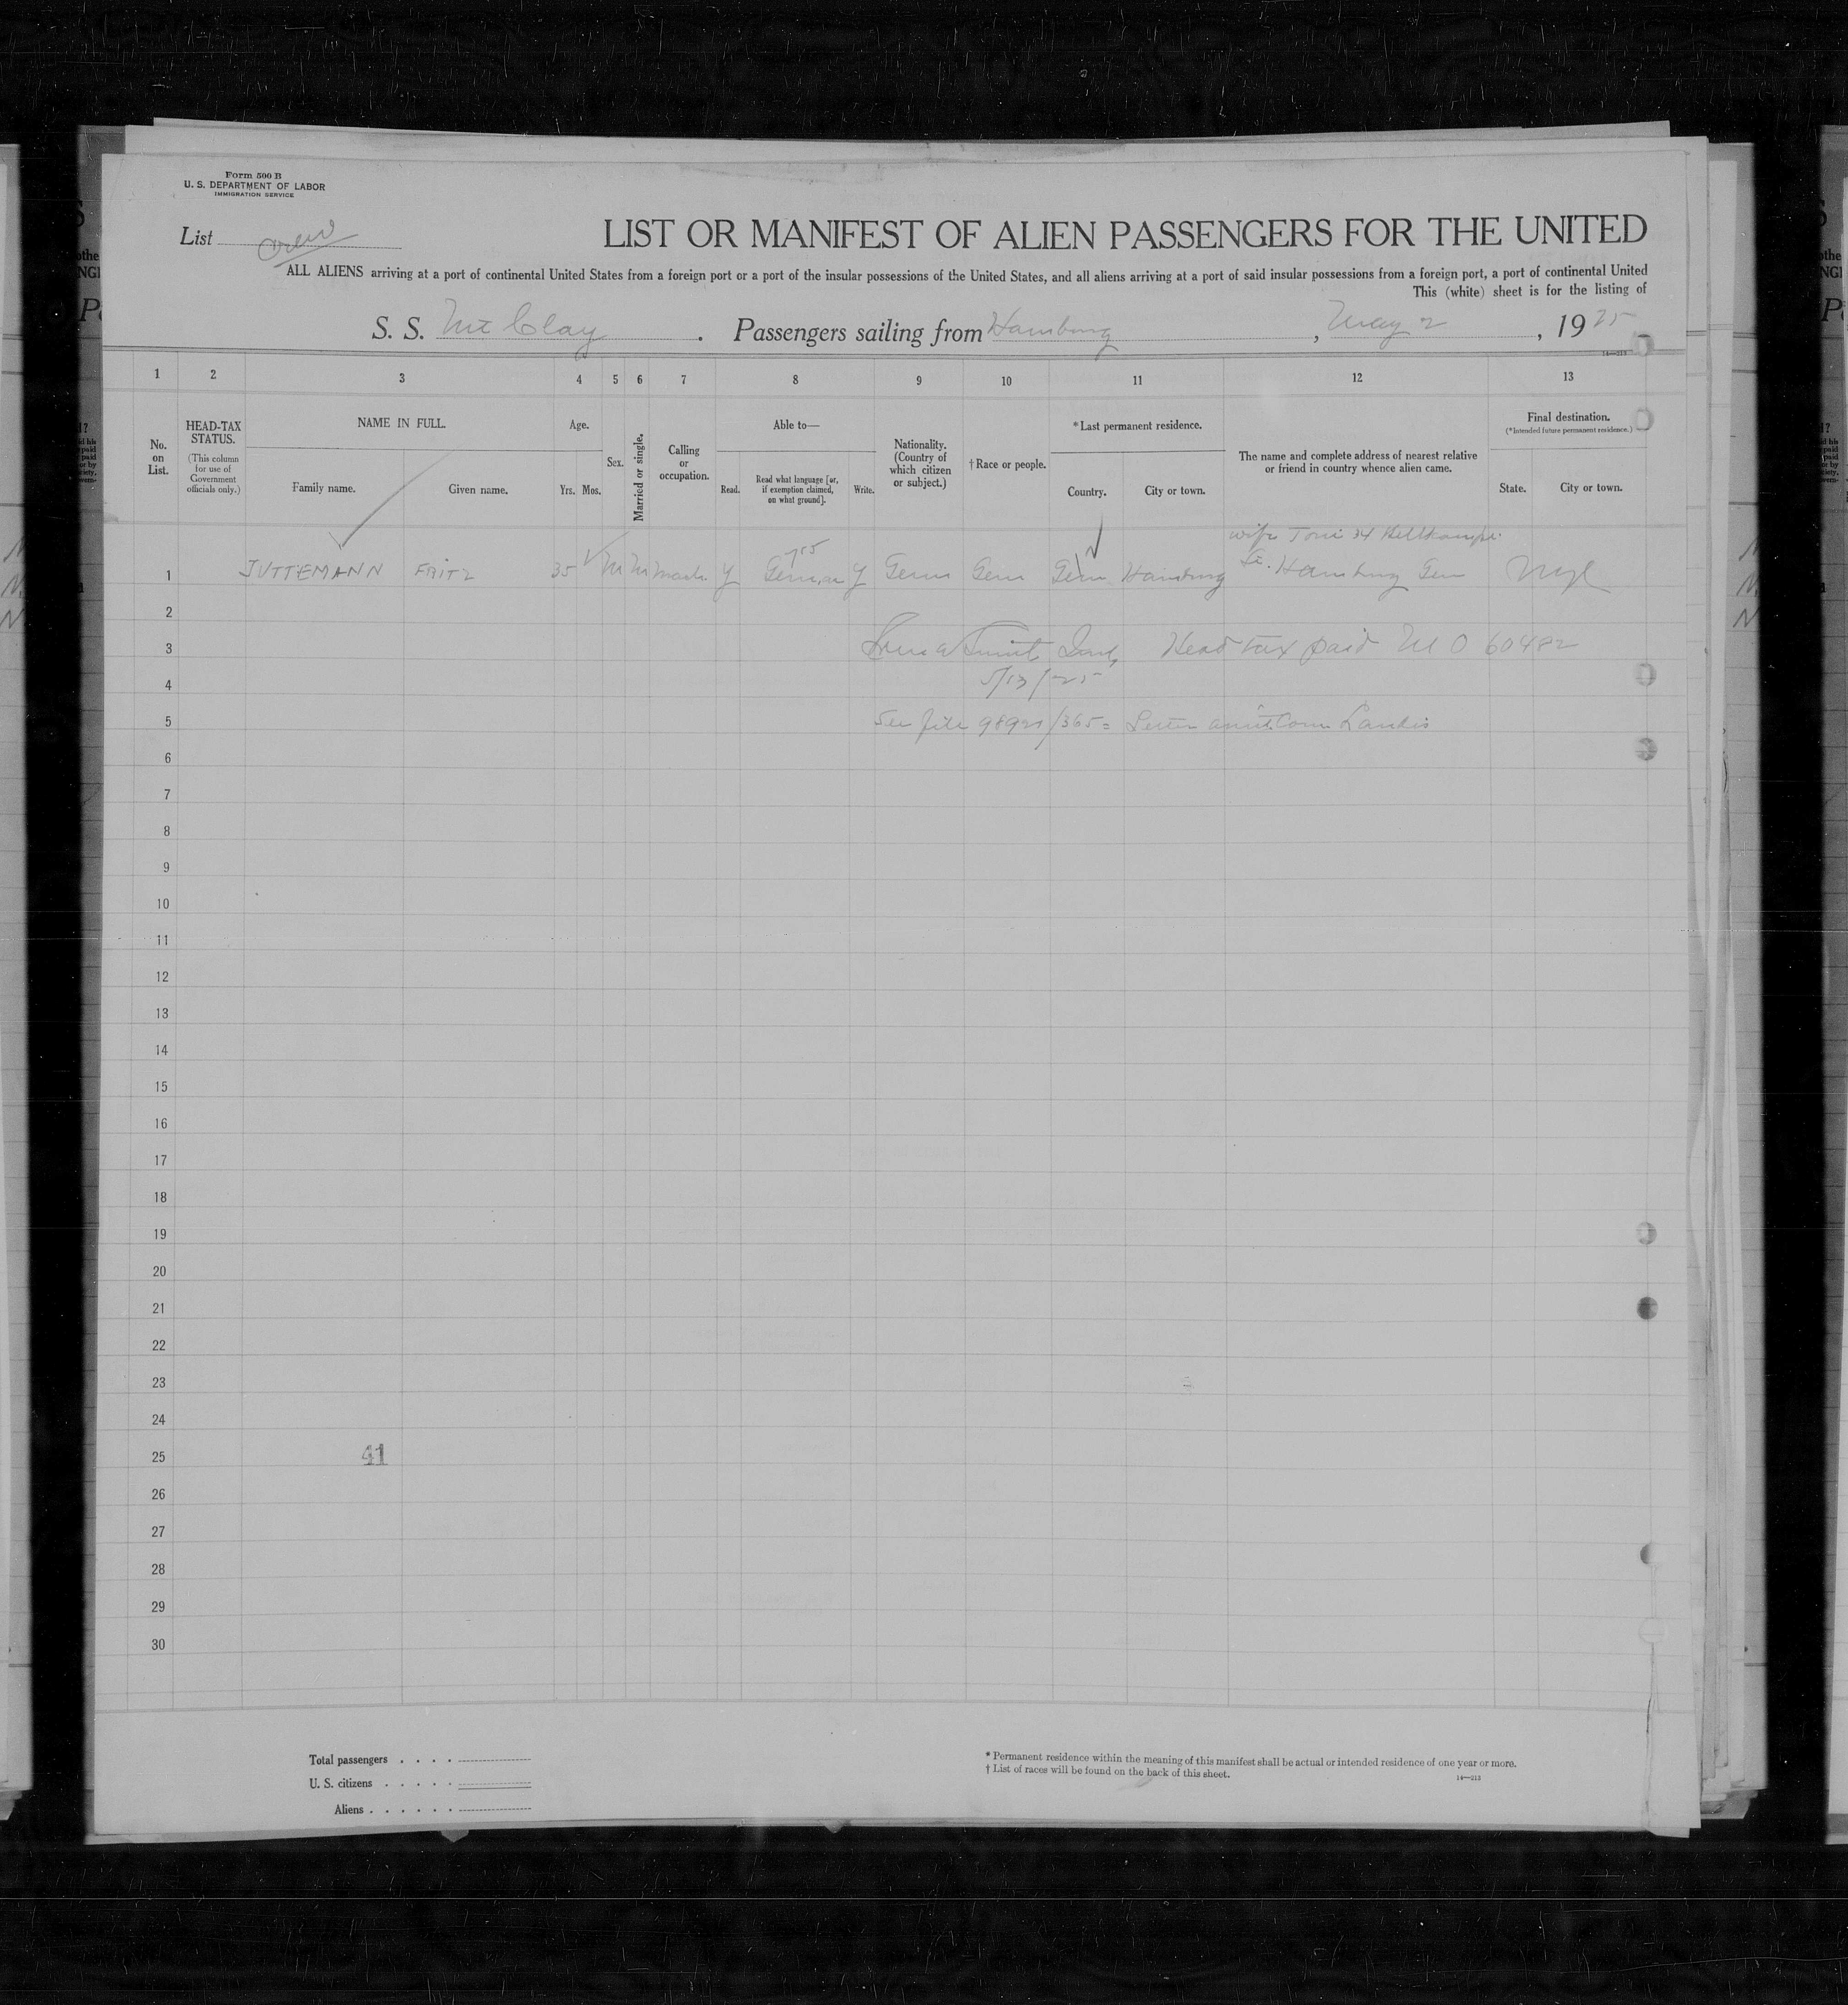 Form 500 B
U. S. DEPARTMENT OF LABOR
IMMIGRATION SERVICE
List crew
LIST OR MANIFEST OF ALIEN PASSENGERS FOR THE UNITED
ALL ALIENS arriving at a port of continental United States from a foreign port or a port of the insular possessions of the United States, and all aliens arriving at a port of said insular possessions from a foreign port, a port of continental United
This (white) sheet is for the listing of
S. S. Mt Clay. Passengers sailing from Hamburg, May 2, 1925
14—213
1 2 3 4 5 6 7 8 9 10 11 12 13
No. on List.
HEAD-TAX STATUS.
(This column for use of Government officials only.)
NAME IN FULL.
Family name.
Given name.
Age.
Yrs. Mos.
Sex.
Married or single.
Calling or occupation.
Able to—
Read.
Read what language [or, if exemption claimed, on what ground].
Write.
Nationality. (Country of which citizen or subject.)
† Race or people.
*Last permanent residence.
Country.
City or town.
The name and complete address of nearest relative or friend in country whence alien came.
Final destination.
(*Intended future permanent residence.)
State.
City or town.
wife Toni 34
1 JUTTEMANN FRITZ 35 M M Mach. Y German Y Germ Germ Germ Hamburg Hamburg Ger
2
3 Head tax paid M O 60482
4 5/13/25
5 See file 98921/365 = Letter Com Landis
6
7
8
9
10
11
12
13
14
15
16
17
18
19
20
21
22
23
24
25 41
26
27
28
29
30
Total passengers . . . .
U. S. citizens . . . . .
Aliens . . . . . .
* Permanent residence within the meaning of this manifest shall be actual or intended residence of one year or more.
† List of races will be found on the back of this sheet.
14—213